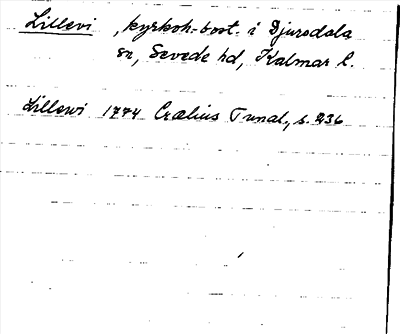 Lillevi, kyrkoh.-bost. i Djursdala
sn, Sevede hd, Kalmar l.
Lillewi 1774 Crælius Tunal., s. 236